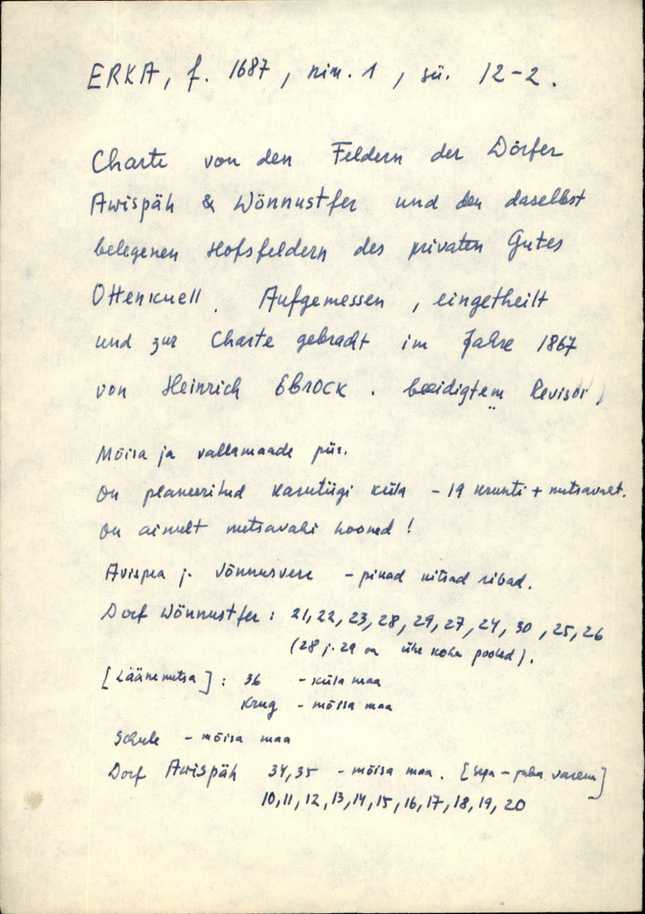 ERKA, f. 1687, nim. 1, sü. 12-2.
Charte von den Feldern der Dörfer
Awispäh & Wönnustfer und den daselbst
belegenen Hofsfeldern des privaten Gutes
Ottenküll. Aufgemessen, eingetheilt
und zur Charte gebracht im Jahre 1867
von Heinrich Ebrock. beeidigtem Revisor,
Mõisa ja vallamaade piir.
On planeeritud Kasutügi küla - 19 krunti + metsavaht.
On ainult metsavahi hooned!
Avispea j. Võnnusvere - pikad kitsad ribad.
Dorf Wönnustfer: 21, 22, 23, 28, 29, 27, 24, 30, 25, 26
(28 j. 29 on ühe koha pooled).
[Läänemetsa]: 36 - küla maa
Krug - mõisa maa
Schule - mõisa maa
Dorf Awispäh 34, 35 - mõisa maa. [sepa - varem]
10, 11, 12, 13, 14, 15, 16, 17, 18, 19, 20